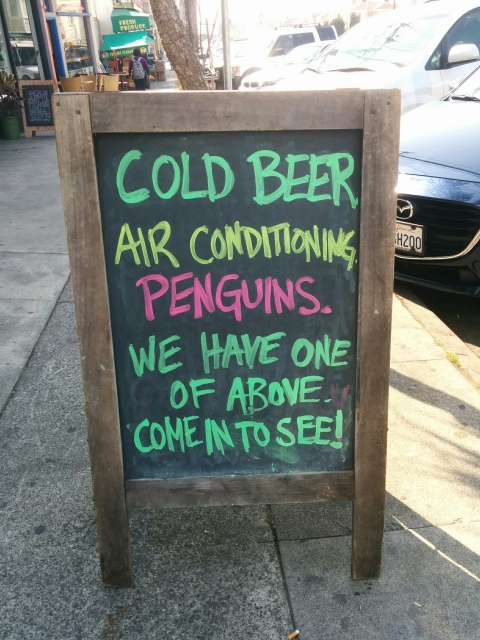 FRESH
PRODUCE
COLD BEER
AIR CONDITIONING.
PENGUINS.
WE HAVE ONE
OF ABOVE.
COME IN TO SEE!